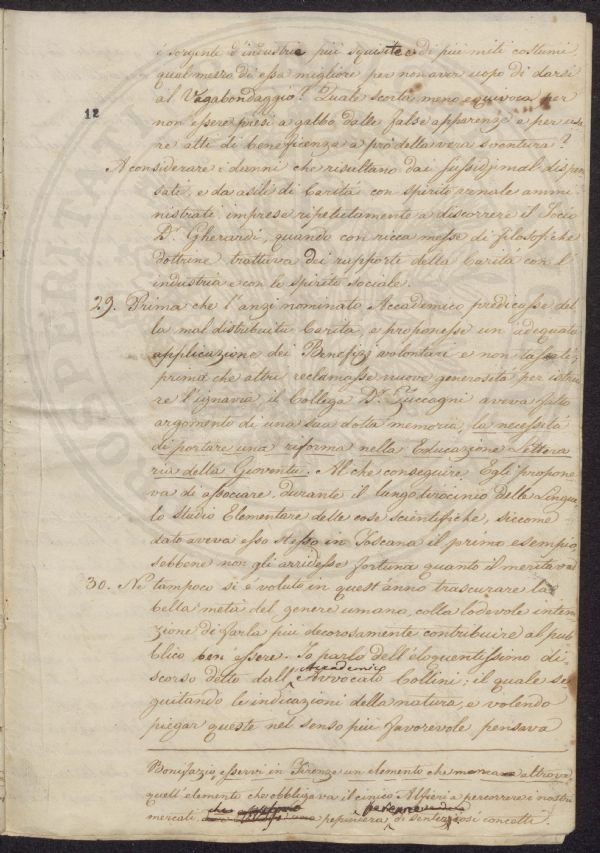 è sorgente d'industrie più squisite e di più miti costumi
qual mezzo di essa migliore per non aver uopo di darsi
al Vagabondaggio? Quale scorta meno equivoca per
12
non essere presi a gabbo dalle false apparenze e per usa-
re atti di beneficenza a prò della vera sventura?
A considerare i danni che risultano dai sussidj mal dispen
sati, e da asili di Carità con spirito venale ammi
nistrati imprese ripetutamente a discorrere il Socio
Dr. Gherardi, quando con ricca messe di filosofiche
dottrine trattava dei rapporti della Carità con l'
industria e con lo spirito sociale.
29. Prima che l'anzi nominato Accademico predicasse del
la mal distribuita Carità, e proponesse un adeguata
applicazione dei Benefizj volontari e non
prima che altri reclamasse nuove generosità per istrui
re l'ignavia, il Collega Dr. Zuccagni aveva fatto
argomento di una sua dotta memoria, la necessità
di portare una riforma nella Educazione Lettera
ria della Gioventù. Al che conseguire Egli propone
va di associare, durante il lungo tirocinio delle Lingue,
lo studio Elementare delle cose scientifiche, siccome
dato aveva esso stesso in Toscana il primo esempio,
sebbene non gli arridesse fortuna quanto il meritava.
30. Ne tampoco si è voluto in quest'anno trascurare la
bella metà del genere umano, colla lodevole inten
zione di farla più decorosamente contribuire al pub
blico ben'essere. Io parlo dell'eloquentissimo di
scorso detto dall' Accademico Avvocato Collini; il quale se
guitando le indicazioni della natura, e volendo
piegar queste nel senso più favorevole pensava
Bonifazio, esservi in Firenze un elemento che manca altrove,
quell'elemento che obbligava il cinico Alfieri a percorrere i nostri
mercati, pepiniera di sentir così concetti.